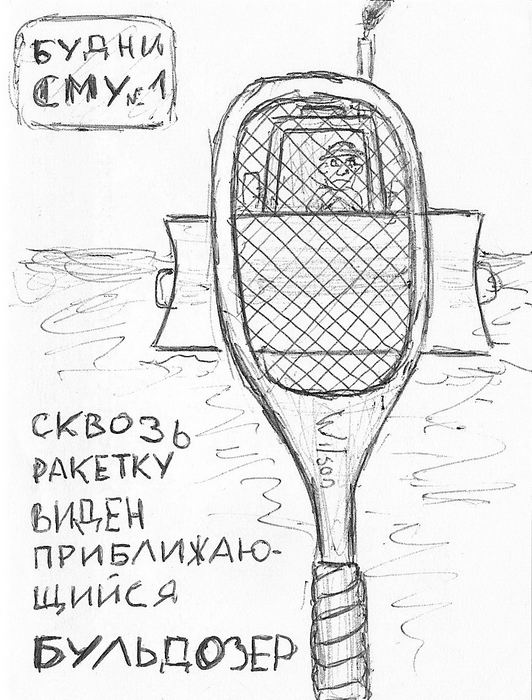 БУДНИ
СМУ №1
Wilson
СКВОЗЬ
РАКЕТКУ
ВИДЕН
ПРИБЛИЖАЮ-
ЩИЙСЯ
БУЛЬДОЗЕР